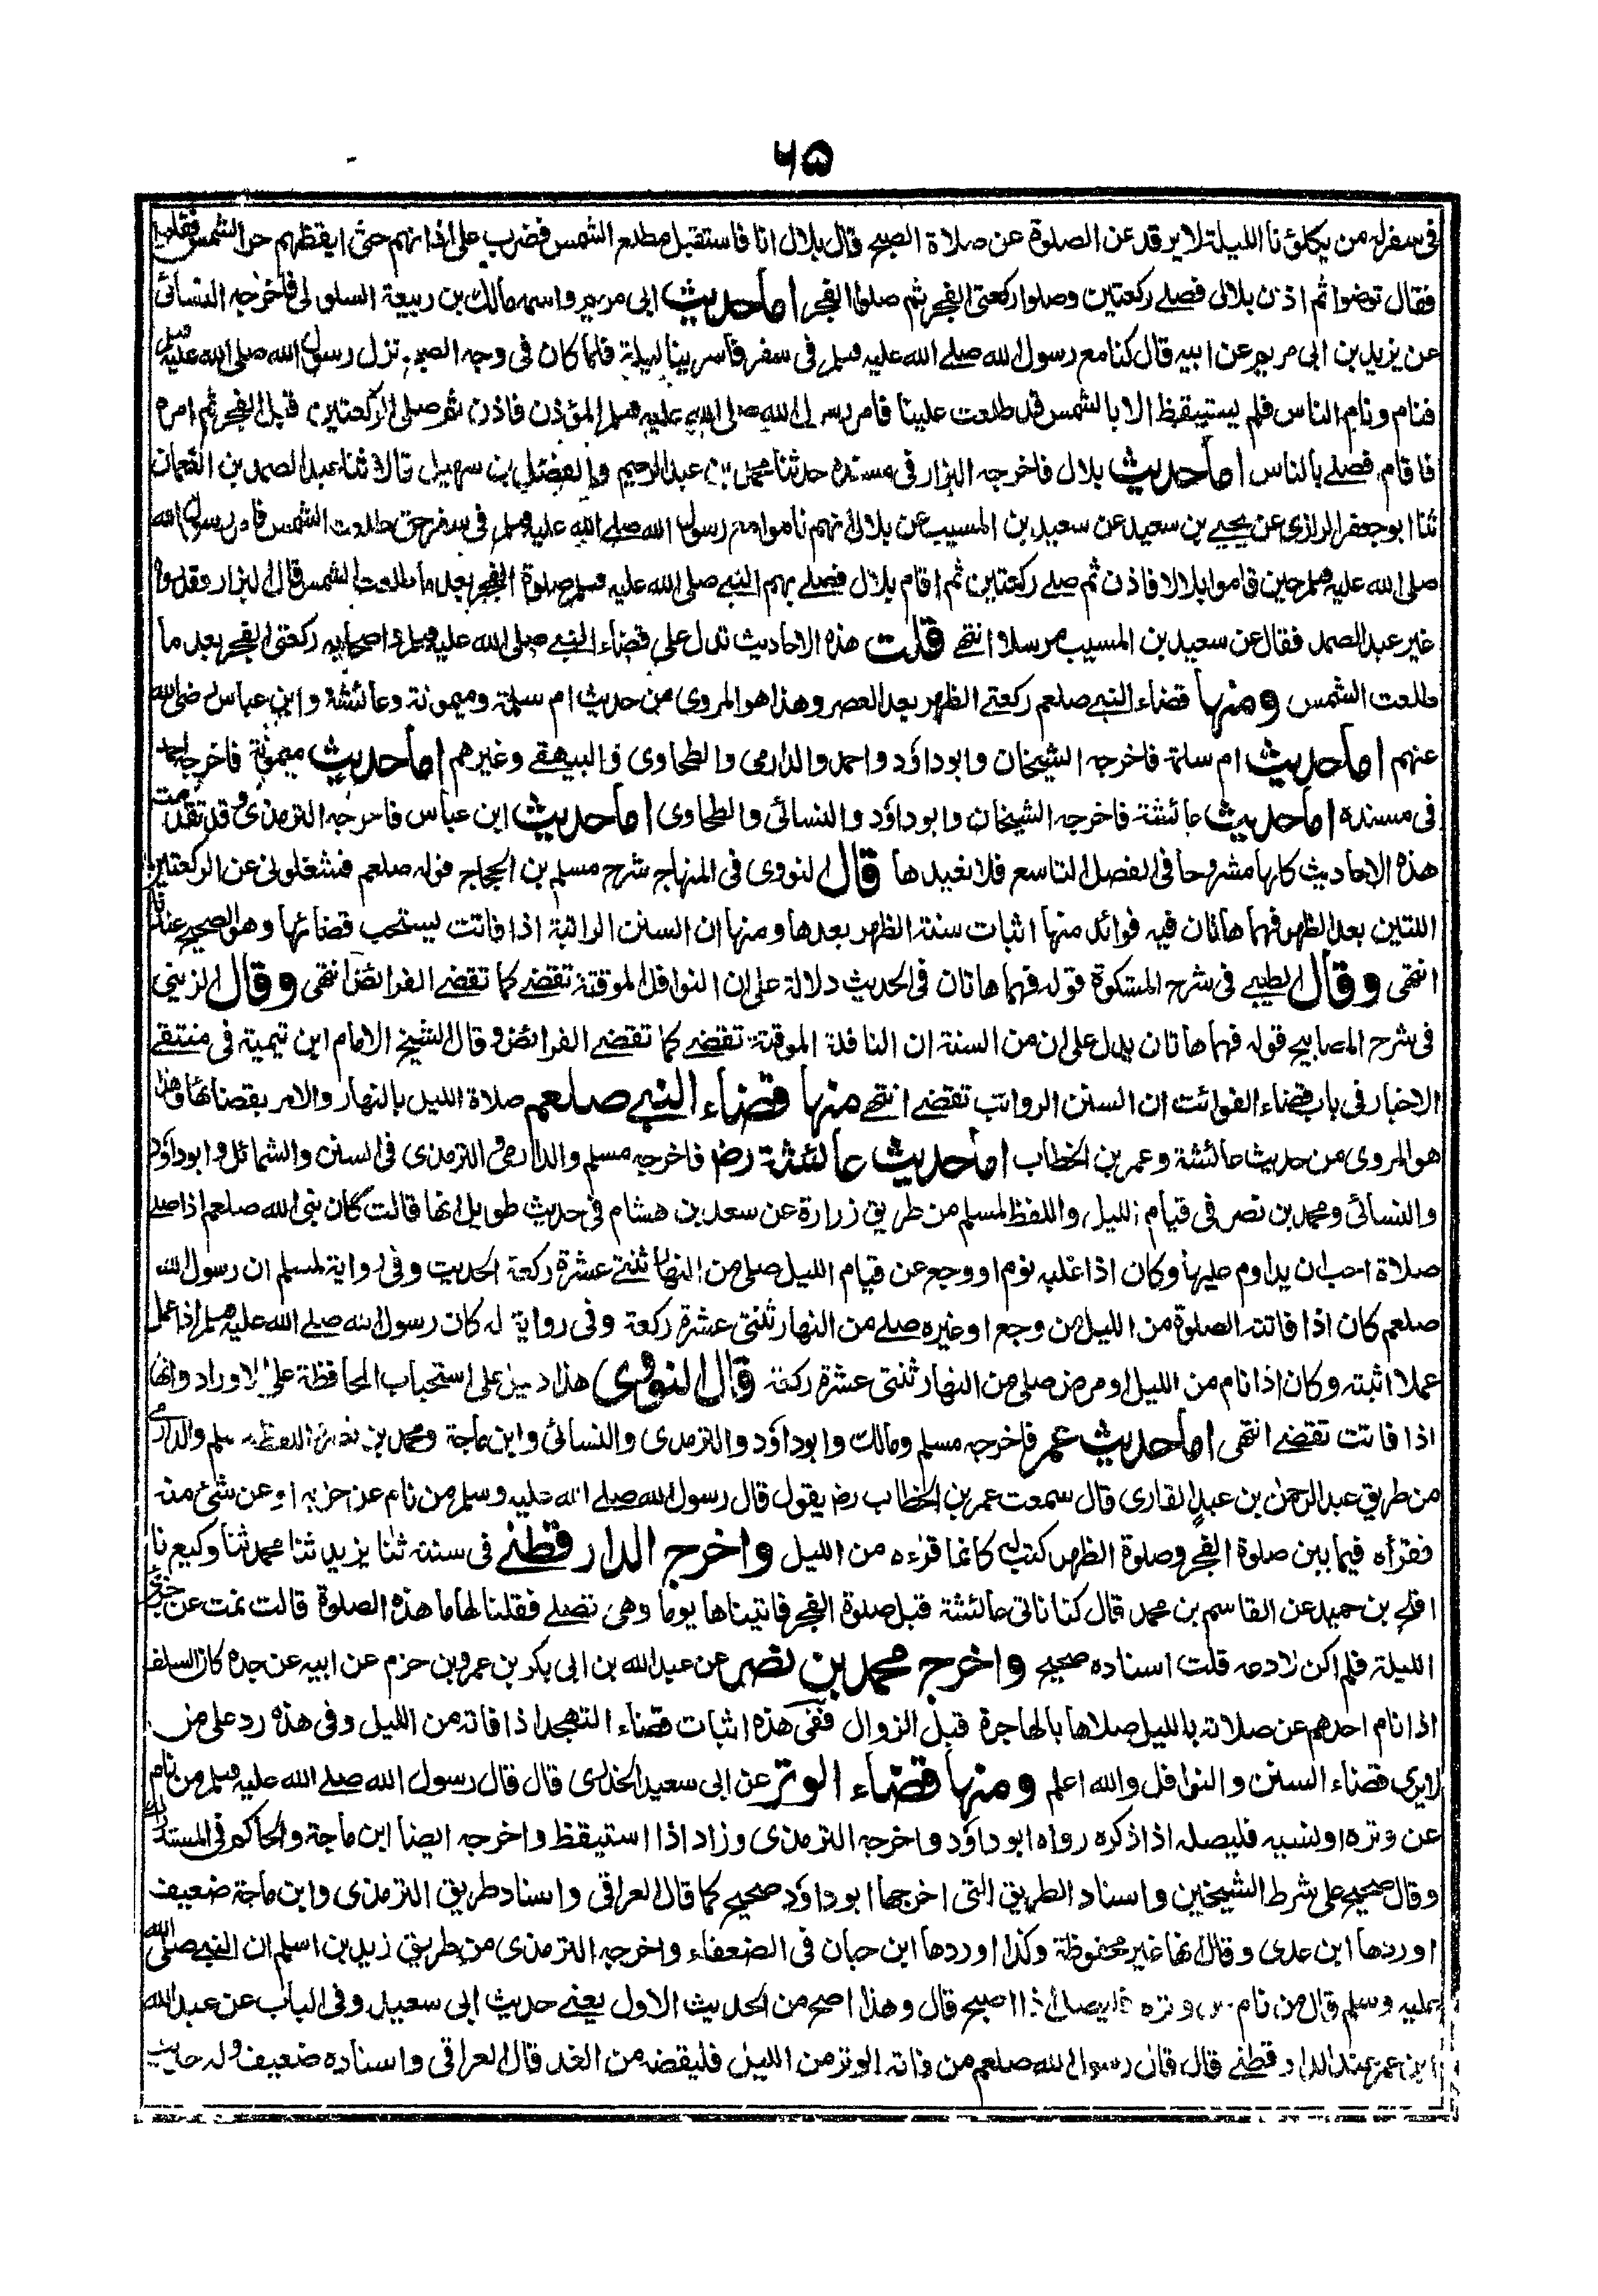 ٦٥
فی سفر له من یکلؤنا اللیلة لا یرقد عن الصلوة عن صلاة الصبح قال بلال انا فاستقبل مطلع الشمس فضرب علی اذانهم حتی ایقظهم حر الشمس فقاموا
فقال توضوا ثم اذن بلال فصلے رکعتین وصلوا رکعتی الفجر ثم صلوا الفجر اما حدیث ابی مریم واسمه مالك بن ربیعة السلولی فاخرجه النسائی
عن یزید بن ابی مریم عن ابیه قال کنا مع رسول الله صلے الله علیه وسلم فی سفر فاسرینا لیلة فلما کان فی وجه الصبح نزل رسول الله صلی الله علیه وسلم
فنام ونام الناس فلم یستیقظ الا بالشمس قد طلعت علینا فامر رسول الله صلی الله علیه وسلم المؤذن فاذن ثم صلی الرکعتین قبل الفجر ثم امره
فاقام فصلے بالناس اما حدیث بلال فاخرجه البزار فی مسنده حدثنا محمد بن عبد الرحیم والفضل بن سهیل قالا ثنا عبد الصمد بن النعمان
ثنا ابو جعفر الرازی عن یحیے بن سعید عن سعید بن المسیب عن بلال انهم ناموا مع رسول الله صلے الله علیه وسلم فی سفر حتی طلعت الشمس فامر رسول الله
صلی الله علیه وسلم حین قاموا بلالا فاذن ثم صلے رکعتین ثم اقام بلال فصلے بهم النبے صلی الله علیه وسلم صلوة الفجر بعد ما طلعت الشمس قال البزار وقد رواه
غیر عبد الصمد فقال عن سعید بن المسیب مرسلا انتهے قلت هذه الاحادیث تدل علی قضاء النبے صلی الله علیه وسلم واصحابه رکعتی الفجر بعد ما
طلعت الشمس ومنها قضاء النبے صلعم رکعتے الظهر بعد العصر وهذا هو المروی من حدیث ام سلمة ومیمونة وعائشة وابن عباس رضی الله
عنهم اما حدیث ام سلمة فاخرجه الشیخان وابو داؤد واحمد والدارمی والطحاوی والبیهقے وغیرهم اما حدیث میمونة فاخرجه احمد
فی مسنده اما حدیث عائشة فاخرجه الشیخان وابو داؤد والنسائی والطحاوی اما حدیث ابن عباس فاخرجه الترمذی وقد تقدمت
هذه الاحادیث کلها مشروحا فی الفصل التاسع فلا نعیدها قال النووی فی المنهاج شرح مسلم بن الحجاج قوله صلعم فشغلونی عن الرکعتین
اللتین بعد الظهر فهما هاتان فیه فوائد منها اثبات سنة الظهر بعدها ومنها ان السنن الراتبة اذا فاتت یستحب قضائها وهو الصحیح عندنا
انتهی وقال الطیبے فی شرح المشکوة قوله فهما هاتان فی الحدیث دلالة علی ان النوافل الموقتة تقضے کما تقضے الفرائض انتهی وقال الزینی
فی شرح المصابیح قوله فهما هاتان یدل علی ان من السنة ان النافلة الموقتة تقضے کما تقضے الفرائض وقال الشیخ الامام ابن تیمیة فی منتقے
الاخبار فی باب قضاء الفوائت ان السنن الرواتب تقضے انتهے منها قضاء النبے صلعم صلاة اللیل بالنهار والامر بقضائها وهذا
هو المروی من حدیث عائشة وعمر بن الخطاب اما حدیث عائشة رضـ فاخرجه مسلم والدارمی والترمذی فی السنن والشمائل وابو داؤد
والنسائی ومحمد بن نصر فی قیام اللیل واللفظ لمسلم من طریق زرارة عن سعد بن هشام فی حدیث طویل انها قالت کان نبی الله صلعم اذا صلے
صلاة احب ان یداوم علیها وکان اذا غلبه نوم او وجع عن قیام اللیل صلی من النهار ثنتے عشرة رکعة الحدیث وفی روایة لمسلم ان رسول الله
صلعم کان اذا فاتته الصلوة من اللیل من وجع او غیره صلے من النهار ثنتی عشرة رکعة وفی روایة له کان رسول الله صلے الله علیه وسلم اذا عمل
عملا اثبته وکان اذا نام من اللیل او مرض صلی من النهار ثنتی عشرة رکعة قال النووی هذا دلیل علی استحباب المحافظة علی الاوراد وانها
اذا فاتت تقضے انتهی اما حدیث عمر فاخرجه مسلم ومالك وابو داؤد والترمذی والنسائی وابن ماجة ومحمد بن نصر واللفظ لمسلم والدارمی
من طریق عبد الرحمن بن عبد القاری قال سمعت عمر بن الخطاب رضـ یقول قال رسول الله صلے الله علیه وسلم من نام عن حزبه او عن شئ منه
فقرأه فیما بین صلوة الفجر وصلوة الظهر کتب له کانما قرءه من اللیل واخرج الدار قطنے فی سننه ثنا یزید ثنا محمد ثنا وکیع نا
افلح بن حمید عن القاسم بن محمد قال کنا ناتی عائشة قبل صلوة الفجر فاتیناها یوما وهی تصلے فقلنا لها ما هذه الصلوة قالت نمت عن جزئی
اللیلة فلم اکن لادعه قلت اسناده صحیح واخرج محمد بن نصر عن عبد الله بن ابی بکر بن عمرو بن حزم عن ابیه عن جده کان السلف
اذا نام احدهم عن صلاته باللیل صلاها بالهاجرة قبل الزوال ففی هذه اثبات قضاء التهجد اذا فاته من اللیل وفی هذه رد علی من
لا یری قضاء السنن والنوافل والله اعلم ومنها قضاء الوتر عن ابی سعید الخدری قال قال رسول الله صلے الله علیه وسلم من نام
عن وتره او نسیه فلیصله اذا ذکره رواه ابو داؤد واخرجه الترمذی وزاد اذا استیقظ واخرجه ایضا ابن ماجة والحاکم فی المستدرك
وقال صحیح علی شرط الشیخین واسناد الطریق التی اخرجها ابو داؤد صحیح کما قال العراقی واسناد طریق الترمذی وابن ماجة ضعیف
اوردها ابن عدی وقال انها غیر محفوظة وکذا اوردها ابن حبان فی الضعفاء واخرجه الترمذی من طریق زید بن اسلم ان النبے صلی الله
علیه وسلم قال من نام عن وتره فلیصل اذا اصبح قال وهذا اصح من الحدیث الاول یعنے حدیث ابی سعید وفی الباب عن عبد الله
ابن عمر عند الدار قطنے قال قال رسول الله صلعم من فاته الوتر من اللیل فلیقضه من الغد قال العراقی واسناده ضعیف وله حدیث